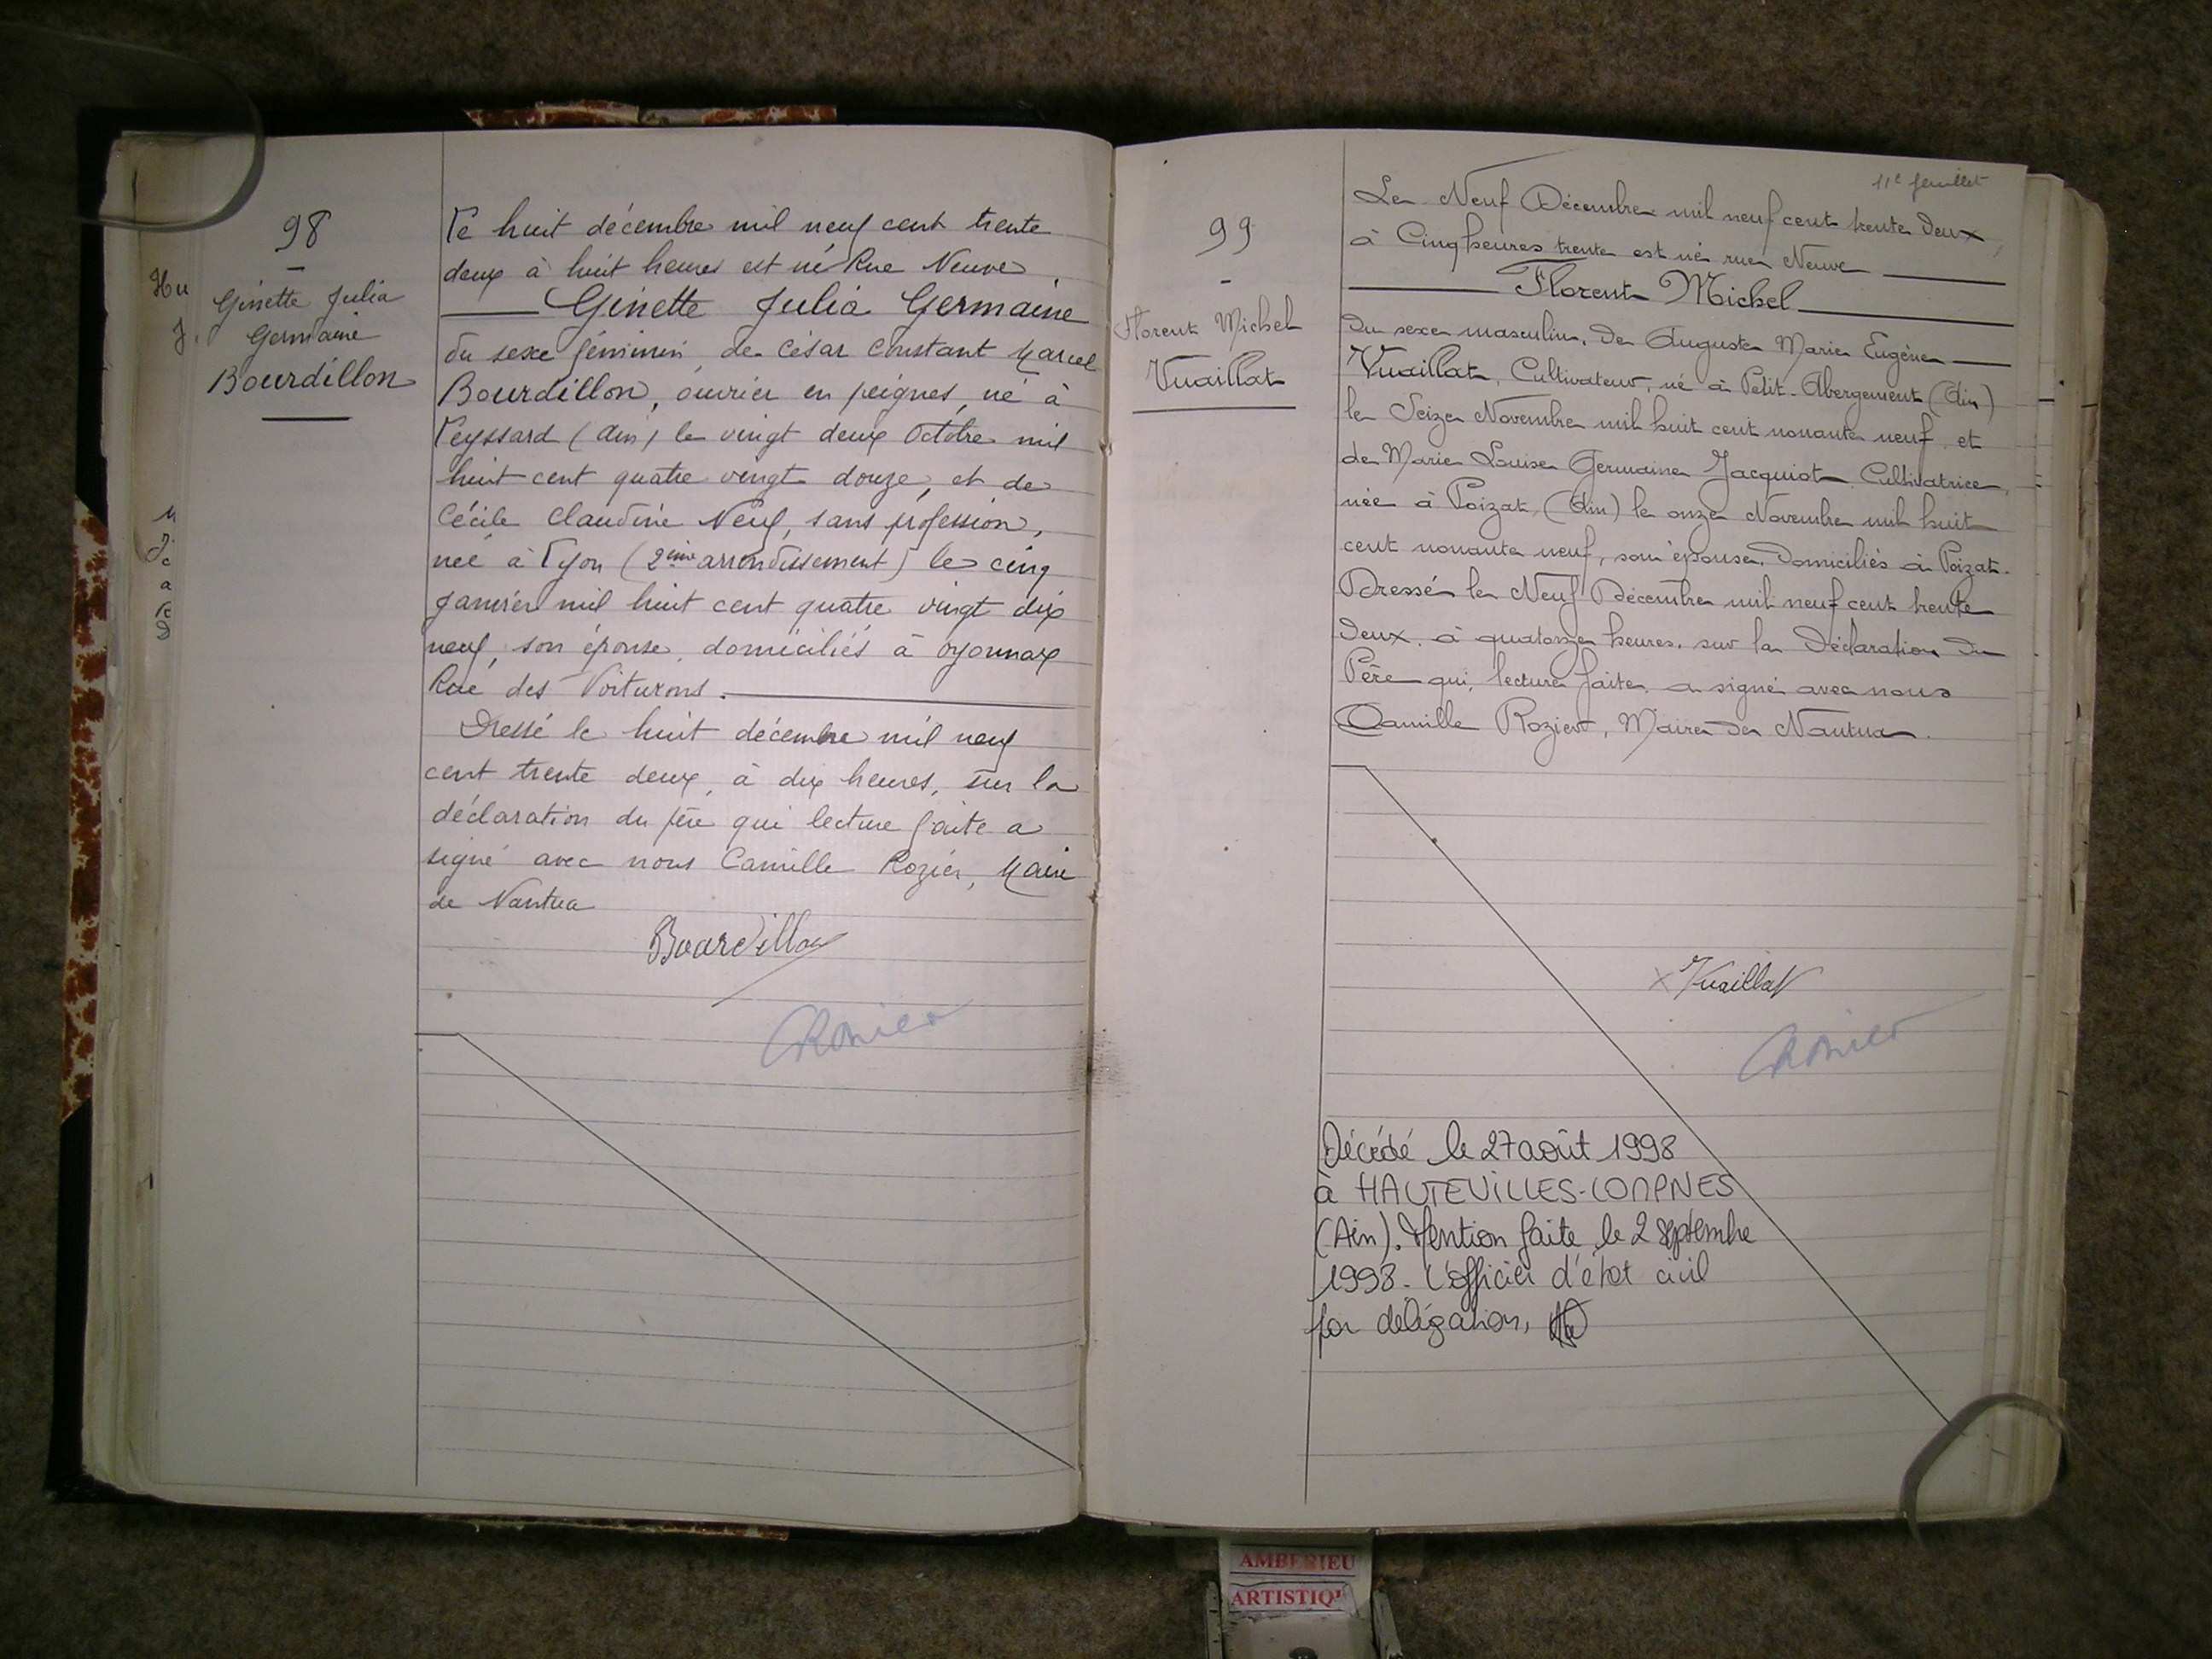 98
Ginette Julia
Germaine
Bourdillon
Hu
J.
Le huit décembre mil neuf cent trente
deux à huit heures est né Rue Neuve
Ginette Julia Germaine
du sexe féminin, de César Constant Marcel
Bourdillon, ouvrier en peignes, né à
Leyssard (Ain) le vingt deux Octobre mil
huit cent quatre vingt douze, et de
Cécile Claudine Neuf, sans profession,
née à Lyon (2ème arrondissement) le cinq
Janvier mil huit cent quatre vingt dix
neuf, son épouse, domiciliés à Oyonnax
Rue des Voiturons.
Dressé le huit décembre mil neuf
cent trente deux, à dix heures, sur la
déclaration du père qui lecture faite a
signé avec nous Camille Rozier, Maire
de Nantua
Bourdillon
CRozier
11e feuillet
99
Florent Michel
Vuaillat
Le Neuf Décembre mil neuf cent trente deux,
à Cinq heures trente est né rue Neuve
Florent Michel
du sexe masculin, de Auguste Marie Eugène
Vuaillat, Cultivateur, né à Petit-Abergement (Ain)
le Seize Novembre mil huit cent nonante neuf et
de Marie Louise Germaine Jacquiot Cultivatrice,
née à Poizat, (Ain) le onze Novembre mil huit
cent nonante neuf, son épouse, domiciliés à Poizat.
Dressé le Neuf Décembre mil neuf cent trente
deux, à quatorze heures, sur la Déclaration du
Père qui, lecture faite, a signé avec nous
Camille Rozier, Maire de Nantua.
x Vuaillat
CRozier
Décédé le 27 août 1998
à HAUTEVILLES-LOMPNES
(Ain). Mention faite le 2 septembre
1998. L'officier d'état civil
par délégation,
AMBERIEU
ARTISTIQ